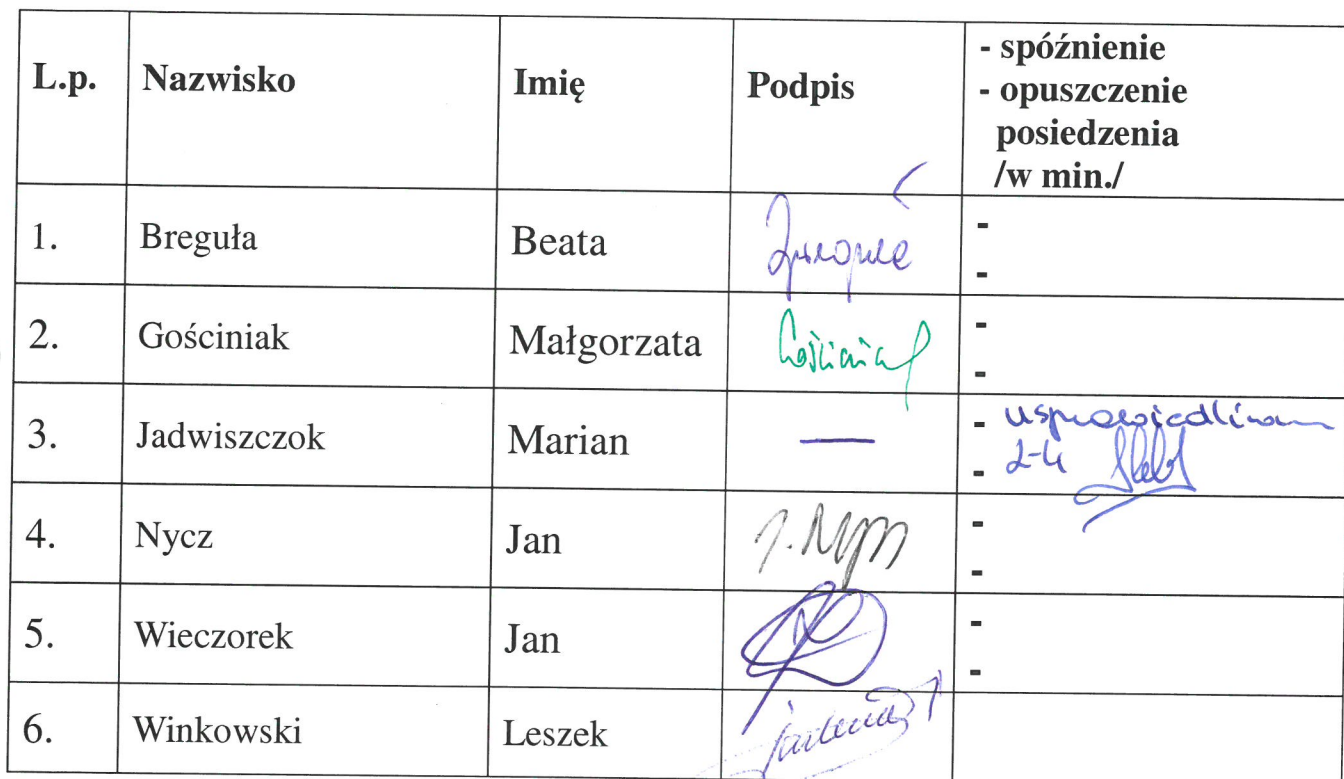 L.p. Nazwisko Imię Podpis - spóźnienie
- opuszczenie
posiedzenia
/w min./
1. Breguła Beata -
-
2. Gościniak Małgorzata Gościniak -
-
3. Jadwiszczok Marian — - usprawiedliwiam
-
4. Nycz Jan J. Nycz -
-
5. Wieczorek Jan -
-
6. Winkowski Leszek